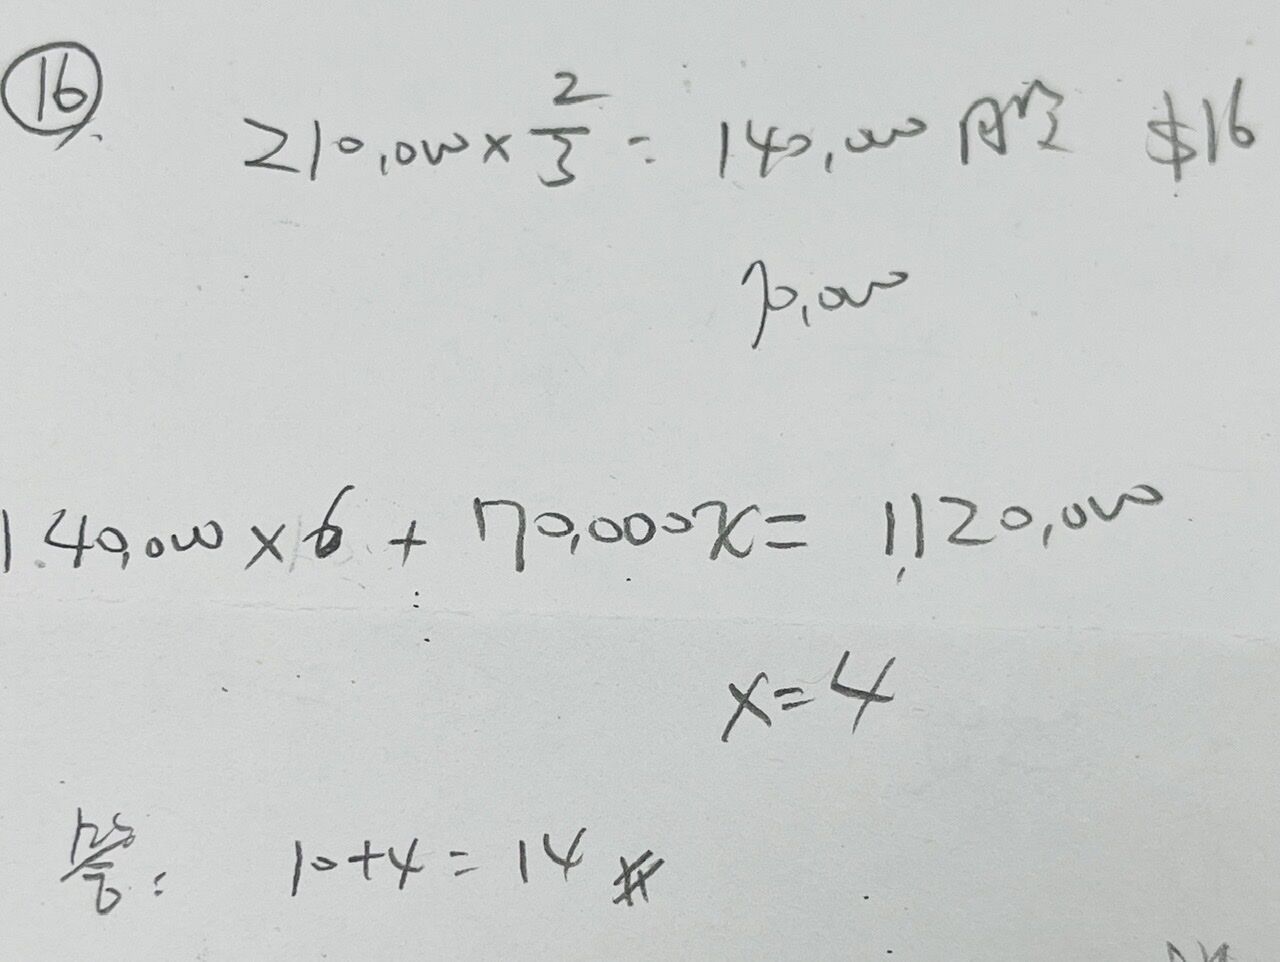 16
210,000 × 2/3 = 140,000 股 $16
70,000
140,000 × 6 + 70,000x = 1,120,000
x = 4
10 + 4 = 14 #